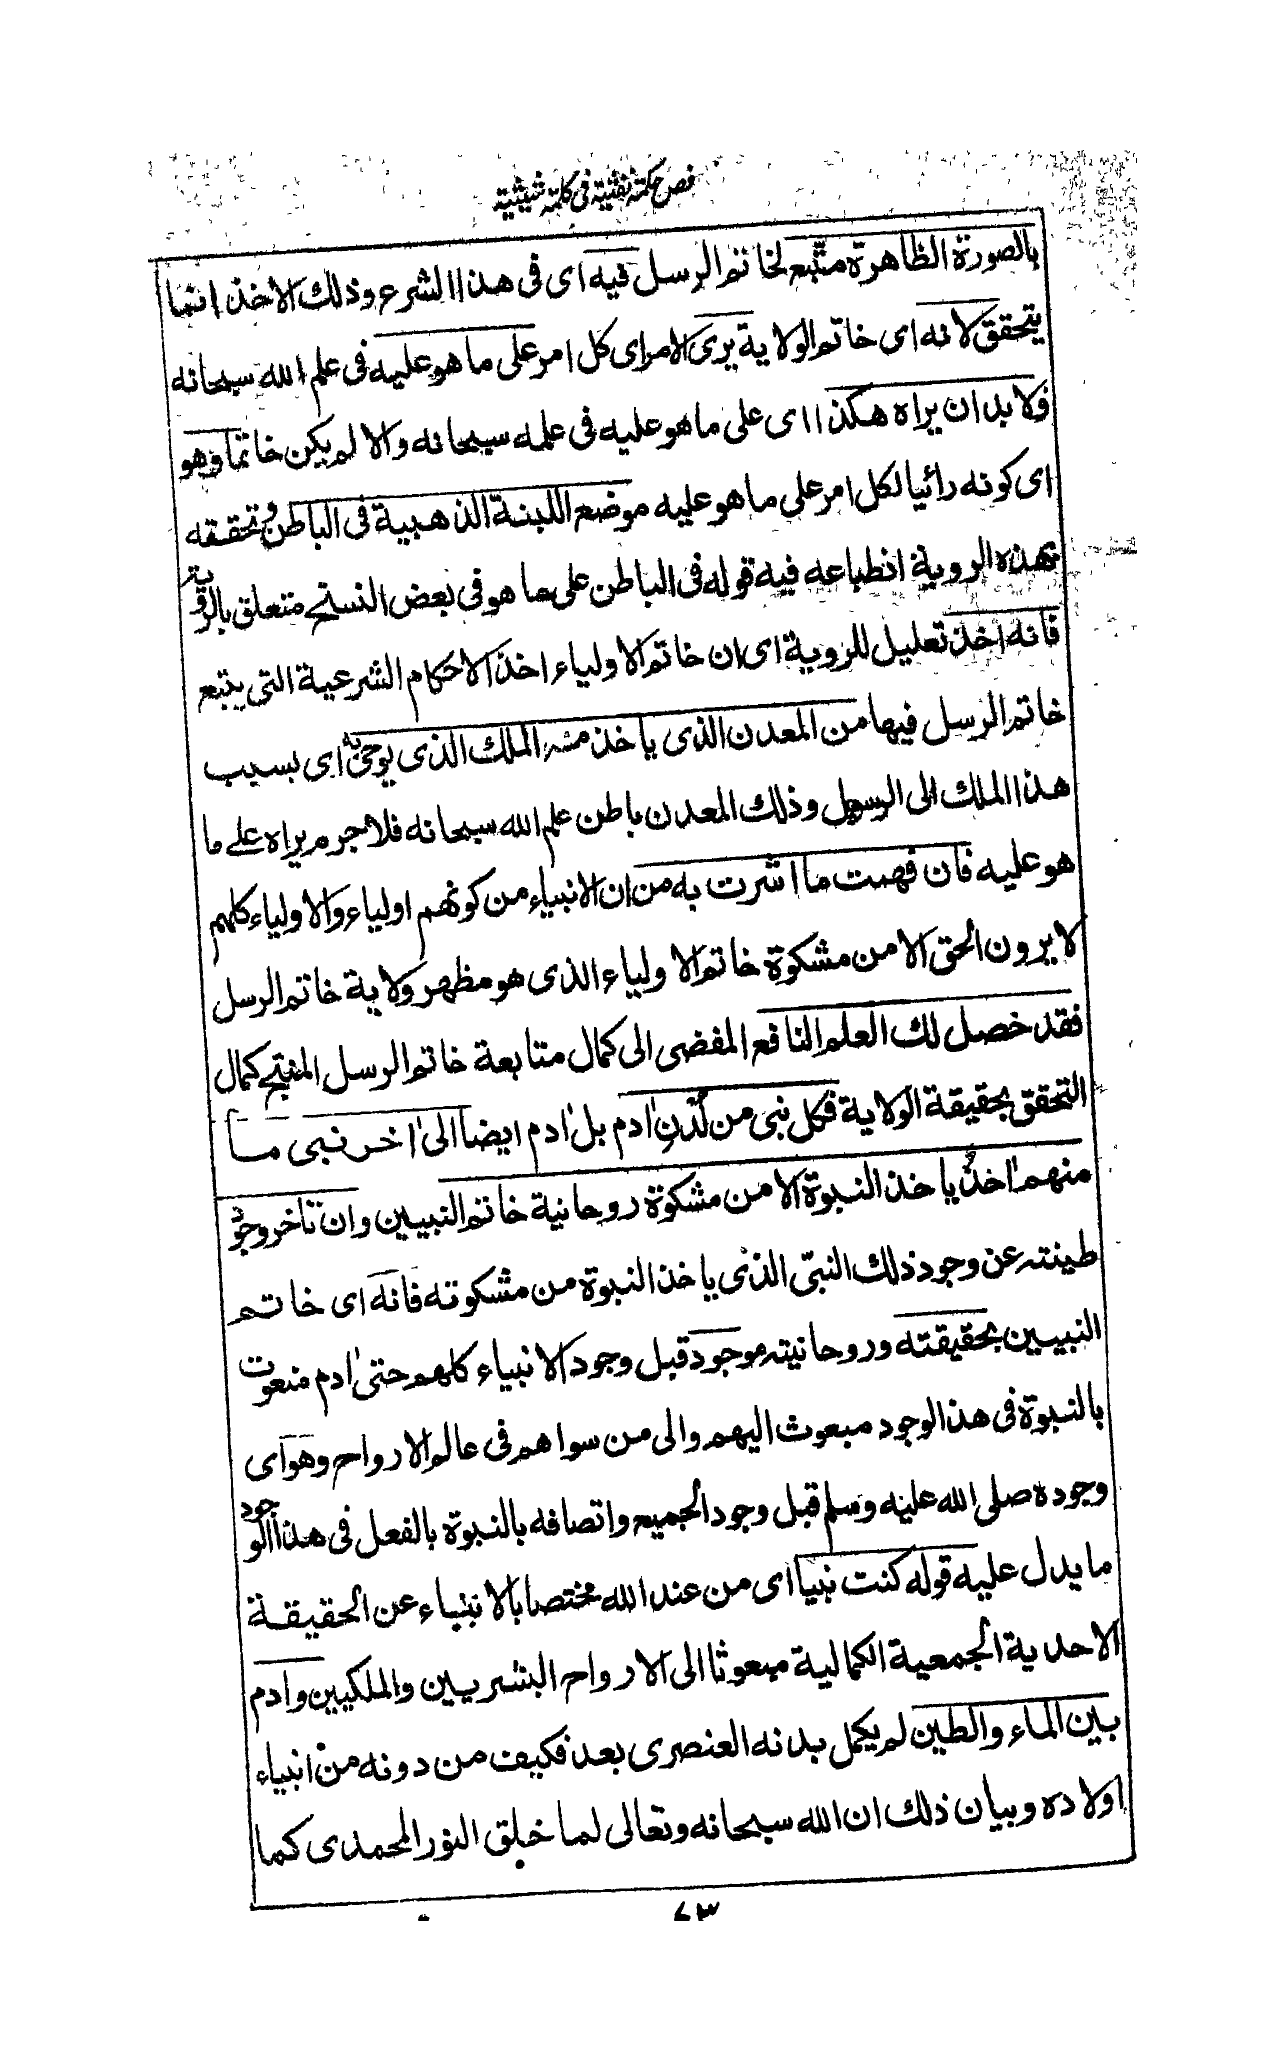 فص حكمة نفثية فى كلمة شيثية
بالصورة الظاهرة متبع لخاتم الرسل فيه اى فى هذا الشرع وذلك الاخذ انما
يتحقق لانه اى خاتم الولاية يرى الامر اى كل امر على ما هو عليه فى علم الله سبحانه
فلا بد ان يراه هكذا اى على ما هو عليه فى علمه سبحانه والا لم يكن خاتما وهو
اى كونه رائيا لكل امر على ما هو عليه موضع اللبنة الذهبية فى الباطن وتحققه
بهذه الروية انطباعه فيه قوله فى الباطن على ما هو فى بعض النسخ متعلق بالروية
فانه اخذ تعليل للروية اى ان خاتم الاولياء اخذ الاحكام الشرعية التى يتبع
خاتم الرسل فيها من المعدن الذى ياخذ منه الملك الذى يوحى به اى بسبب
هذا الملك الى الرسول وذلك المعدن باطن علم الله سبحانه فلا جرم يراه على ما
هو عليه فان فهمت ما اشرت به من ان الانبياء من كونهم اولياء والاولياء كلهم
لا يرون الحق الا من مشكوة خاتم الاولياء الذى هو مظهر ولاية خاتم الرسل
فقد حصل لك العلم النافع المفضى الى كمال متابعة خاتم الرسل المنتج كمال
التحقق بحقيقة الولاية فكل نبى من لدن ادم بل ادم ايضا الى اخر نبى ما
منهم احد ياخذ النبوة الا من مشكوة روحانية خاتم النبيين وان تاخر وجود
طينته عن وجود ذلك النبى الذى ياخذ النبوة من مشكوته فانه اى خاتم
النبيين بحقيقته وروحانيته موجود قبل وجود الانبياء كلهم حتى ادم منعوت
بالنبوة فى هذا الوجود مبعوث اليهم والى من سواهم فى عالم الارواح وهو اى
وجوده صلى الله عليه وسلم قبل وجود الجميع واتصافه بالنبوة بالفعل فى هذا الوجود
ما يدل عليه قوله كنت نبيا اى من عند الله مختصا بالانباء عن الحقيقة
الاحدية الجمعية الكمالية مبعوثا الى الارواح البشريين والملكيين وادم
بين الماء والطين لم يكمل بدنه العنصرى بعد فكيف من دونه من انبياء
اولاده وبيان ذلك ان الله سبحانه وتعالى لما خلق النور المحمدى كما